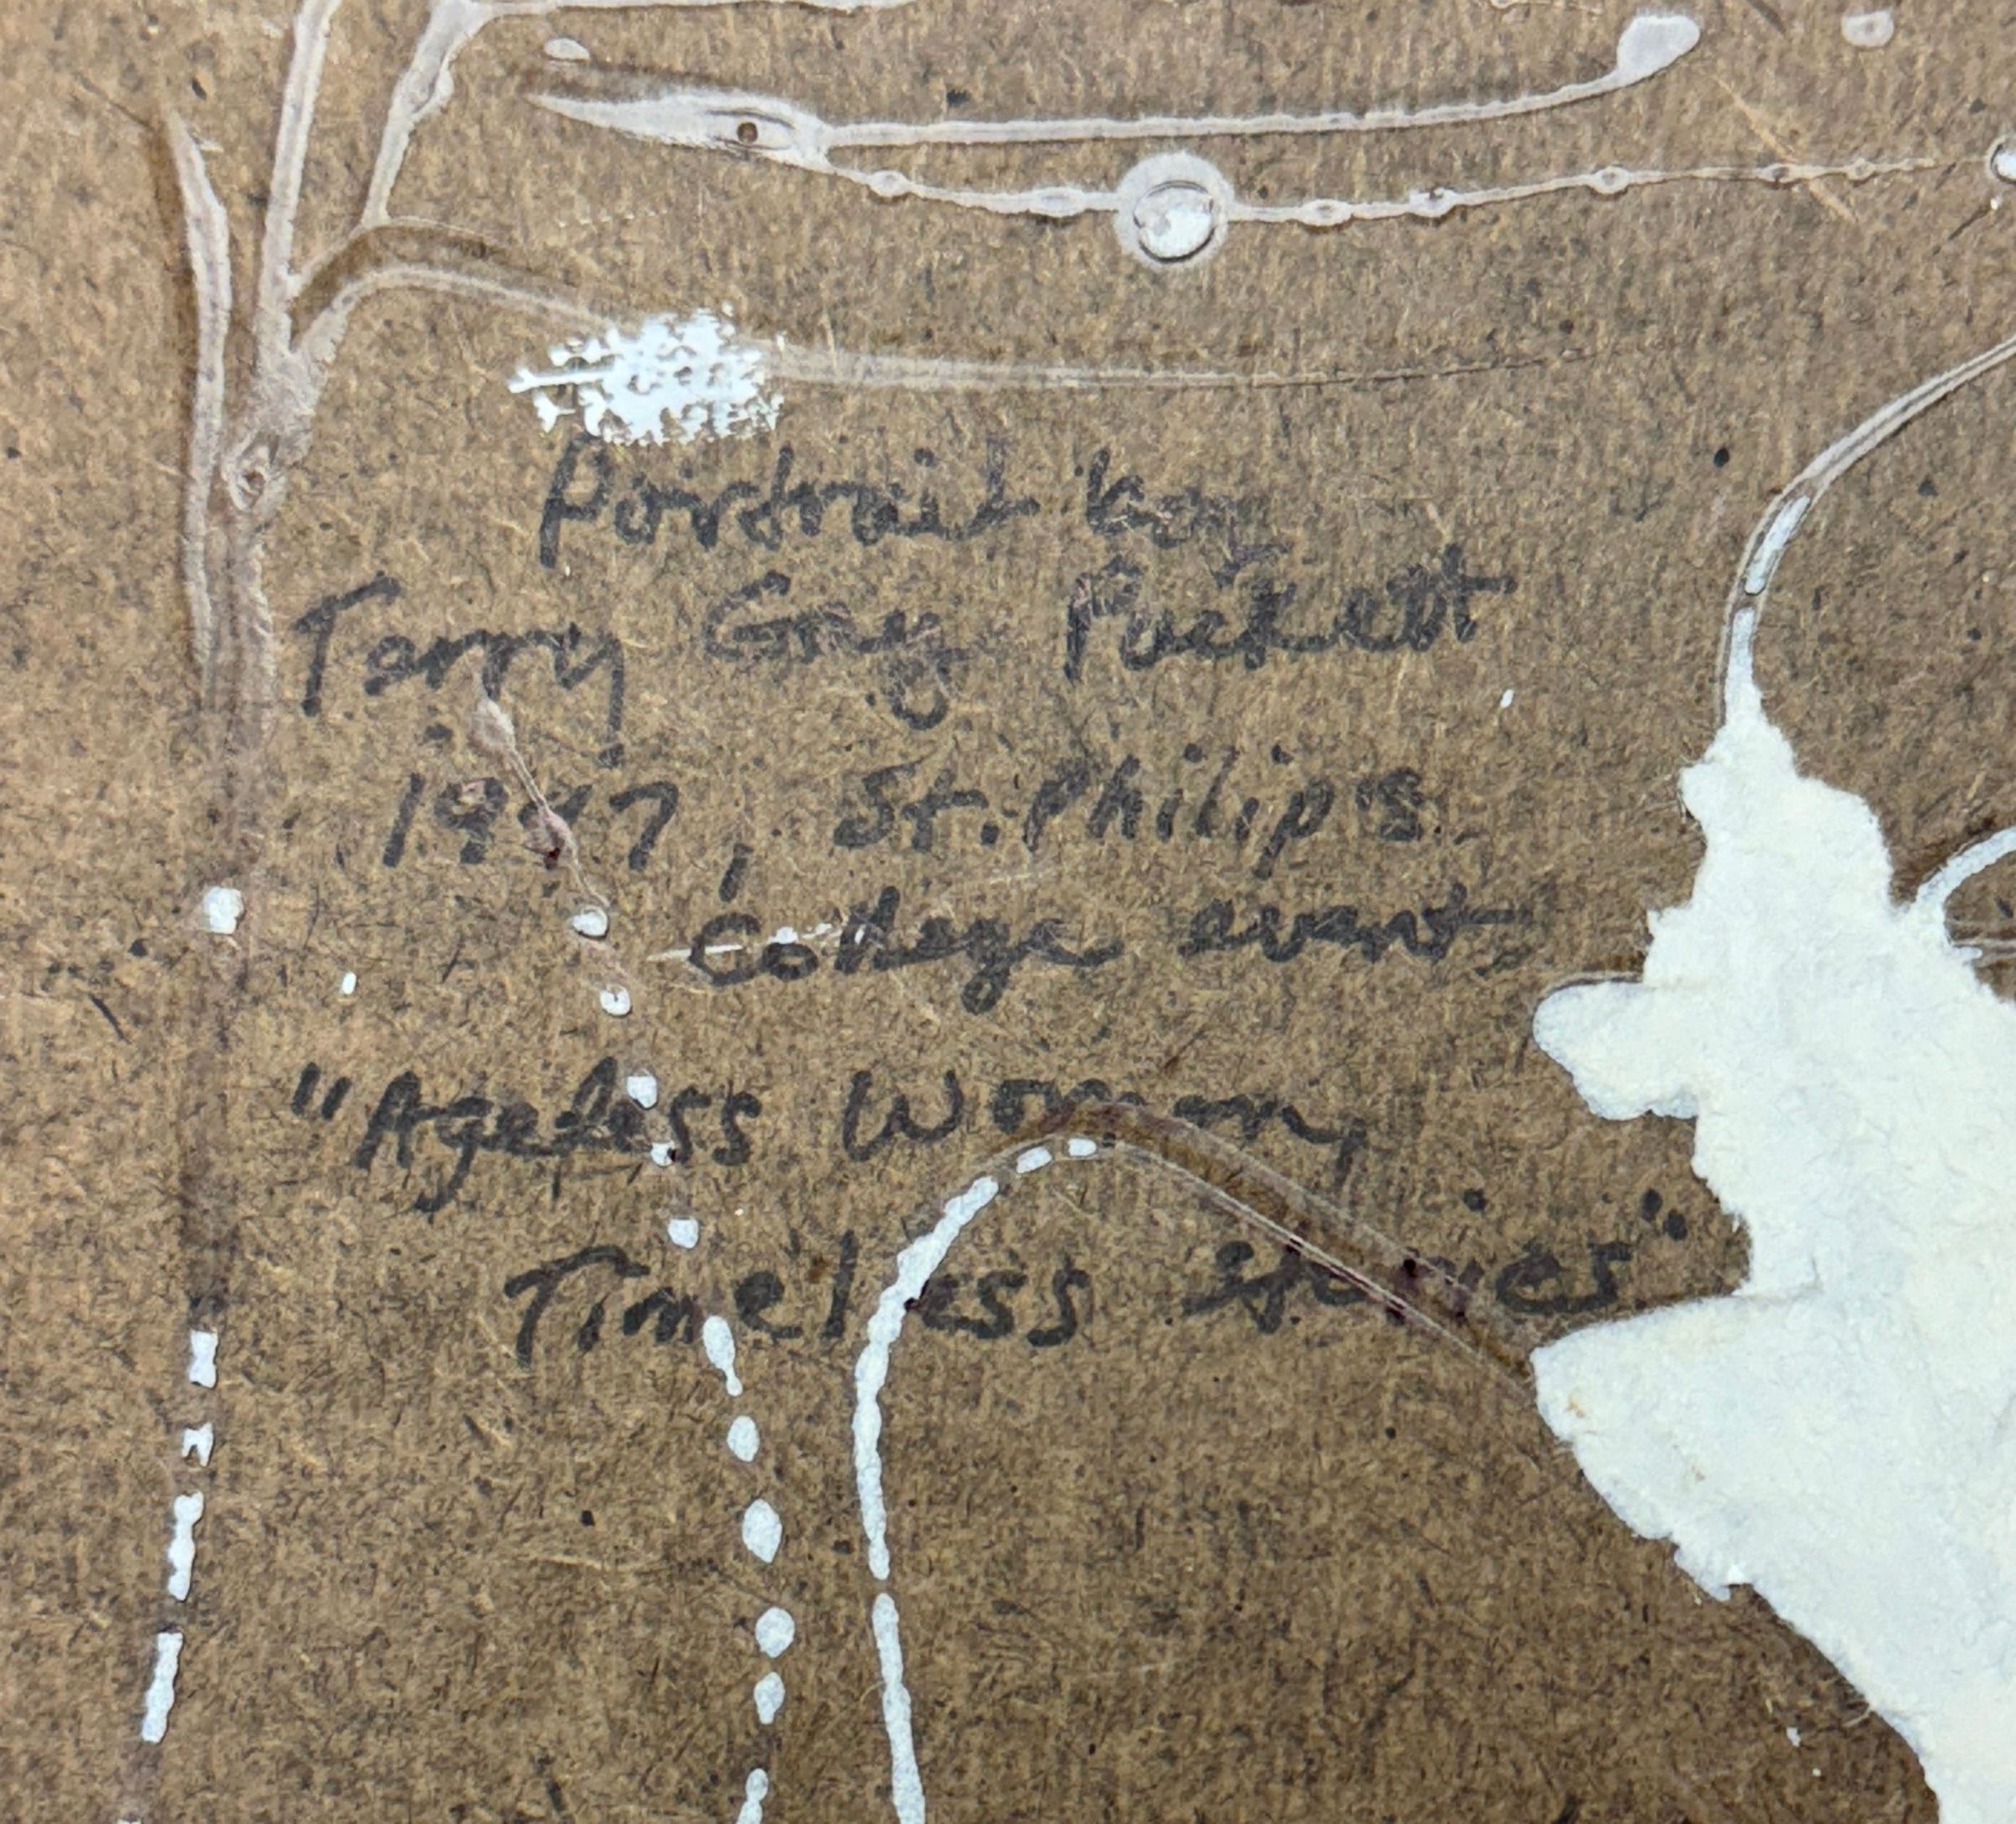 Portrait by
Terry Gay Puckett
1997, St. Philip's
College event
"Ageless Women,
Timeless stories"